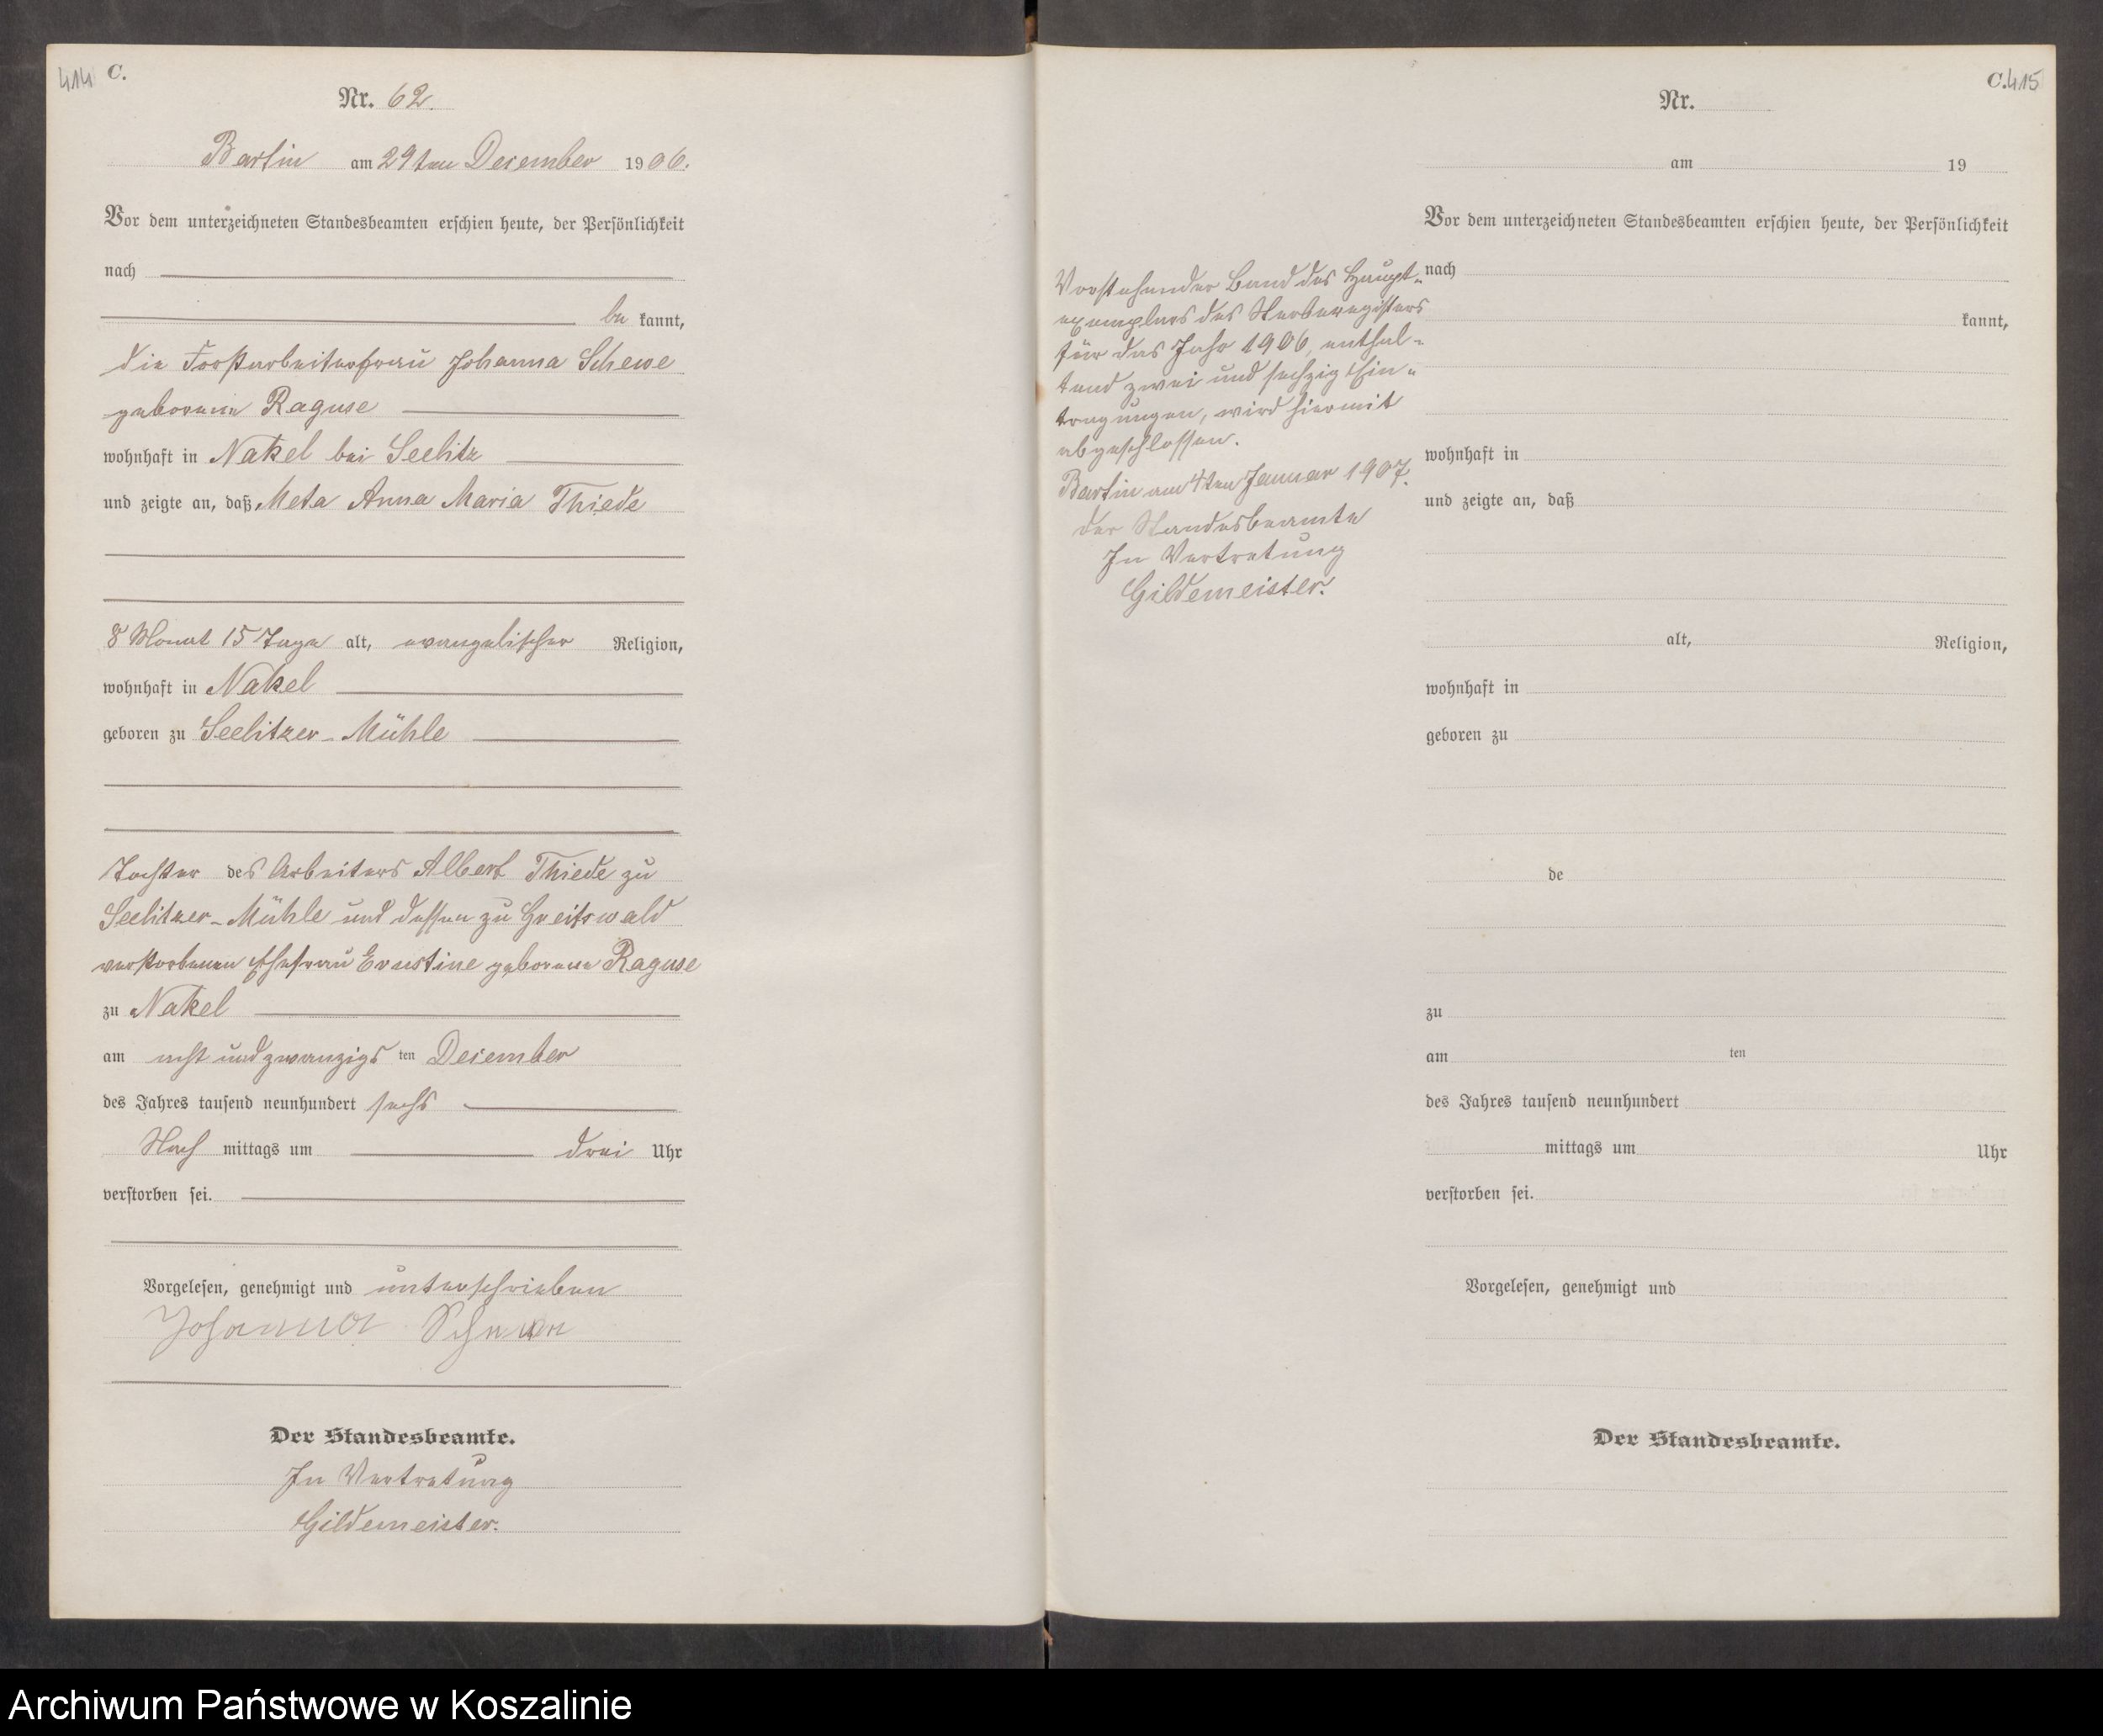 414 C.
Nr. 62.
Bartin am 29ten Dezember 1906.
Vor dem unterzeichneten Standesbeamten erschien heute, der Persönlichkeit
nach
be kannt,
die Forstarbeiterfrau Johanna Schewe
geborene Raguse
wohnhaft in Nakel bei Seelitz
und zeigte an, daß Meta Anna Maria Thiede
8 Monat 15 Tage alt, evangelischer Religion,
wohnhaft in Nakel
geboren zu Seelitzer-Mühle
Tochter des Arbeiters Albert Thiede zu
Seelitzer-Mühle und dessen zu Greifswald
verstorbenen Ehefrau Ernstine geborene Raguse
zu Nakel
am acht und zwanzigsten Dezember
des Jahres tausend neunhundert sechs
Nach mittags um drei Uhr
verstorben sei.
Vorgelesen, genehmigt und unterschrieben
Johanna Schewe
Der Standesbeamte.
In Vertretung
Gildemeister.
C. 415
Nr.
am 19
Vor dem unterzeichneten Standesbeamten erschien heute, der Persönlichkeit
nach
kannt,
wohnhaft in
und zeigte an, daß
alt, Religion,
wohnhaft in
geboren zu
de
zu
am ten
des Jahres tausend neunhundert
mittags um Uhr
verstorben sei.
Vorgelesen, genehmigt und
Der Standesbeamte.
Vorstehender Band des Haupt-
exemplars des Sterberegisters
für das Jahr 1906, enthal-
tend zwei und sechzig Ein-
tragungen, wird hiermit
abgeschlossen.
Bartin am 4ten Januar 1907.
Der Standesbeamte
In Vertretung
Gildemeister.
Archiwum Państwowe w Koszalinie